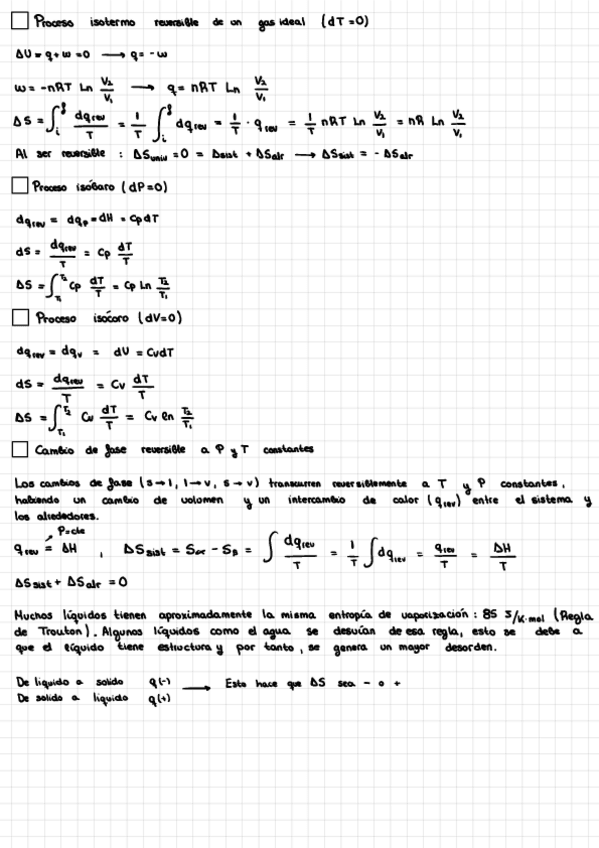 □ Proceso isotermo reversible de un gas ideal (dT=0)
ΔU = q + w = 0 → q = -w
w = -nRT Ln V₂/V₁ → q = nRT Ln V₂/V₁
ΔS = ∫ᵢᶠ dqrev/T = 1/T ∫ᵢᶠ dqrev = 1/T · qrev = 1/T nRT Ln V₂/V₁ = nR Ln V₂/V₁
Al ser reversible : ΔSuniv = 0 = Δsist + ΔSalr → ΔSsist = - ΔSalr
□ Proceso isóbaro (dP=0)
dqrev = dqp = dH = CpdT
dS = dqrev/T = Cp dT/T
ΔS = ∫T₁T₂ Cp dT/T = Cp Ln T₂/T₁
□ Proceso isócoro (dV=0)
dqrev = dqv = dU = CvdT
dS = dqrev/T = Cv dT/T
ΔS = ∫T₁T₂ Cv dT/T = Cv ln T₂/T₁
□ Cambio de fase reversible a P y T constantes
Los cambios de fase (s→l, l→v, s→v) transcurren reversiblemente a T y P constantes,
habiendo un cambio de volumen y un intercambio de calor (qrev) entre el sistema y
los alrededores.
P=cte
qrev = ΔH , ΔSsist = Sα - Sβ = ∫ dqrev/T = 1/T ∫ dqrev = qrev/T = ΔH/T
ΔSsist + ΔSalr = 0
Muchos líquidos tienen aproximadamente la misma entropía de vaporización : 85 J/K·mol (Regla
de Trouton). Algunos líquidos como el agua se desvían de esa regla, esto se debe a
que el líquido tiene estructura y por tanto, se genera un mayor desorden.
De líquido a solido q(-) → Esto hace que ΔS sea - o +
De solido a líquido q(+)